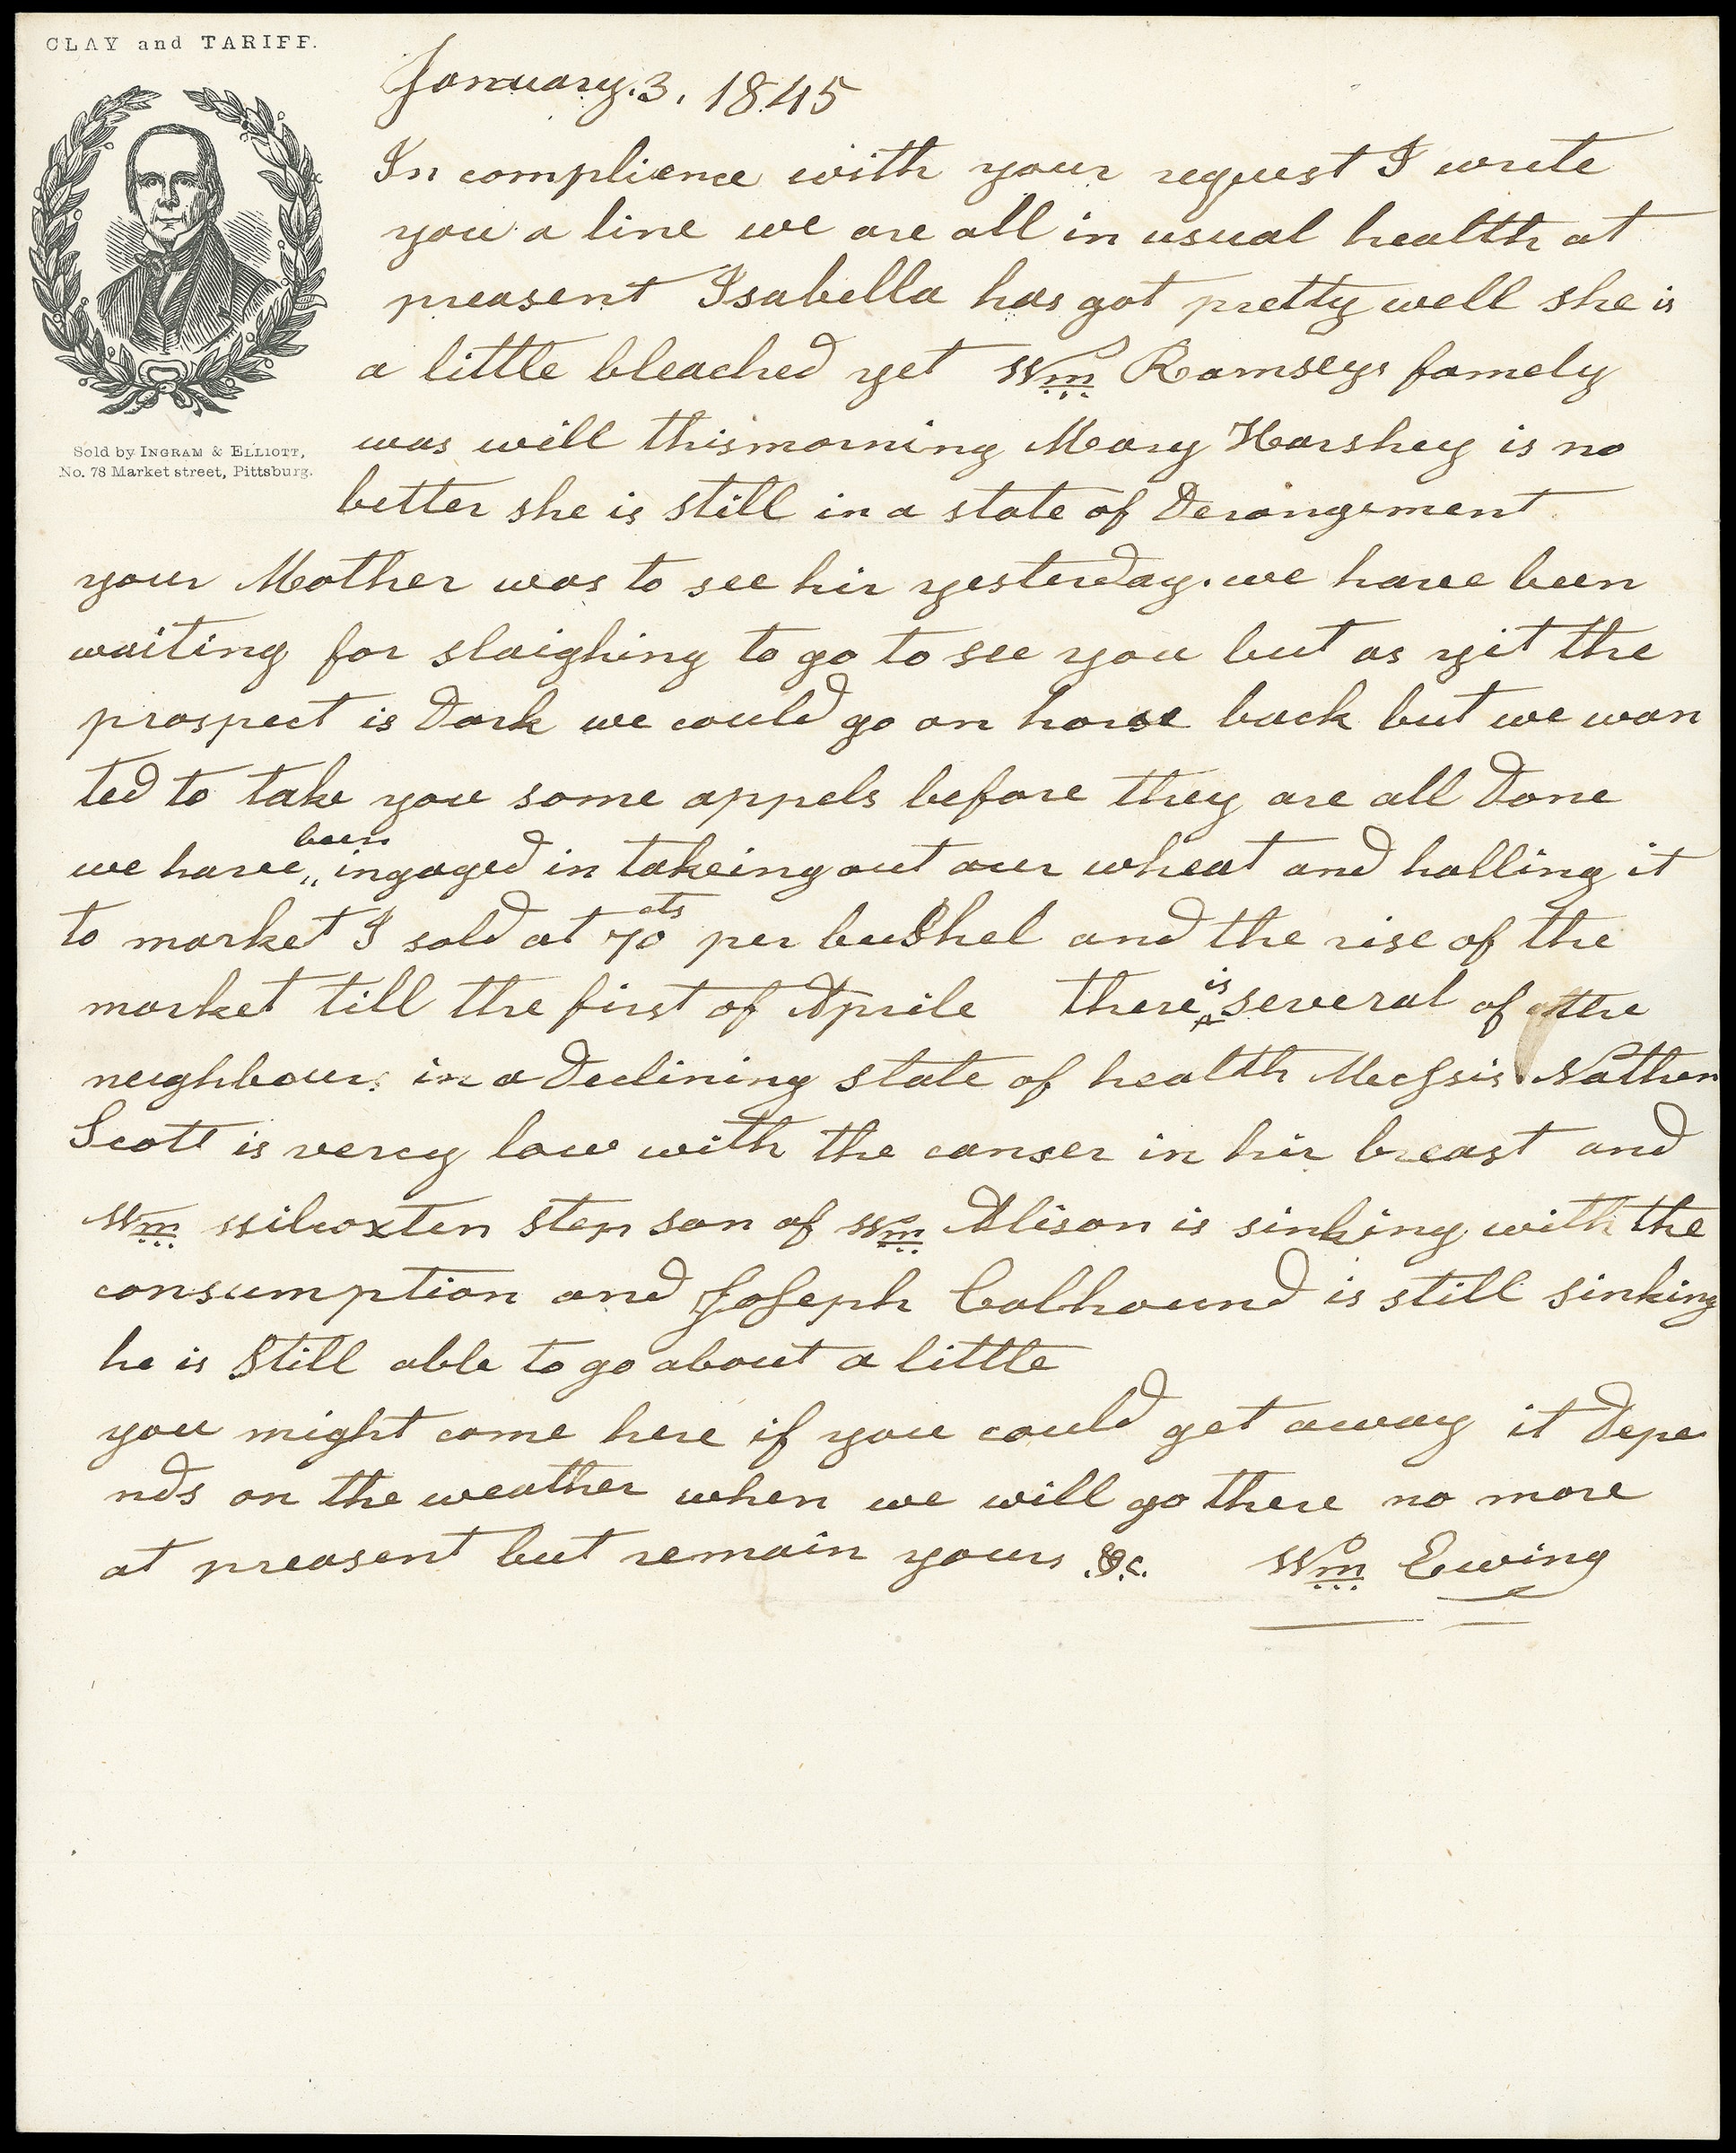 CLAY and TARIFF.
Sold by INGRAM & ELLIOTT,
No. 78 Market street, Pittsburg.
January. 3. 1845
In complience with your request I write
you a line we are all in usual health at
preasent Isabella has got pretty well she is
a little bleached yet Wm Ramseys famely
was will thismorning Mary Harshey is no
better she is still in a state of Derangement
your Mother was to see hir yesterday. we have been
waiting for slaighing to go to see you but as yit the
prospect is Dark we could go on horse back but we wan
ted to take you some appels before they are all Done
we have been ingaged in takeing out our wheat and halling it
to market I sold at 70 cts per bushel and the rise of the
market till the first of Aprile there is several of the
neighbours in a Declining state of health Messis Nathen
Scott is verey low with the canser in hir breast and
Wm Wilcoxten step son of Wm Alison is sinking with the
consumption and Joseph Calhound is still sinking
he is Still able to go about a little
you might come here if you could get away it Depe
nds on the weather when we will go there no more
at preasent but remain yours &c. Wm Ewing